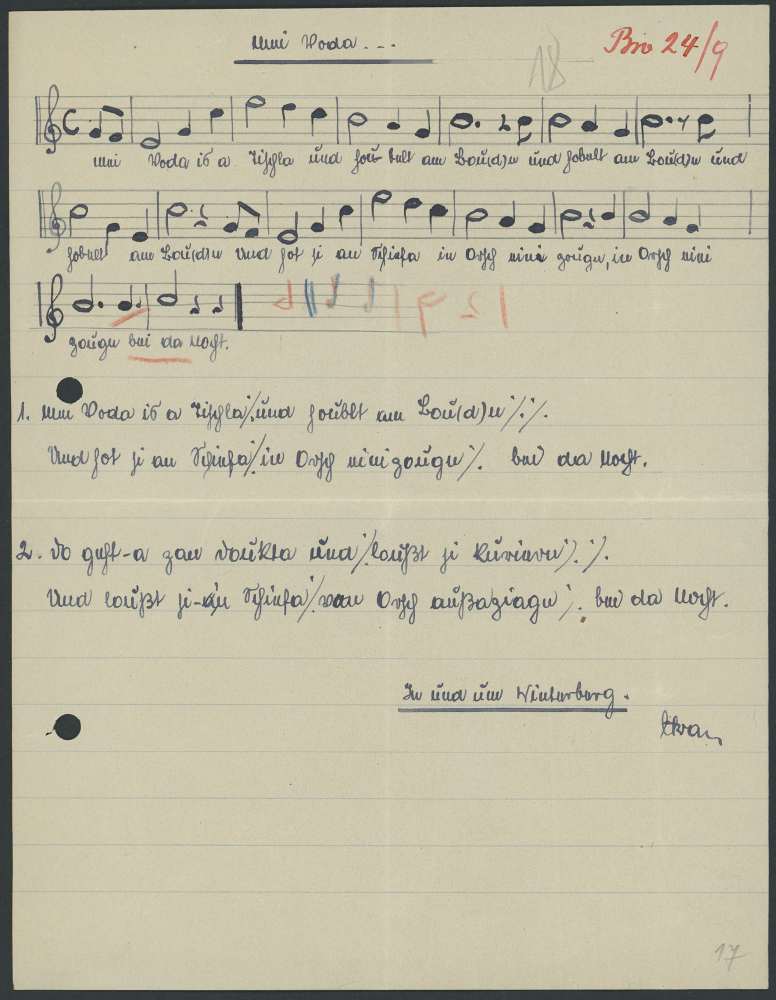 Mei Voda...
18
Bro 24/9
Mei Voda is a Tischla und houbelt am Bou(d)n und hobelt am Bou(d)n und
hobelt am Bou(d)n Und hot si an Schiefa in Orsch eini zougn, in Orsch eini
zougn bei da Nocht.
1. Mei Voda is a Tischla /: und houblt am Bou(d)n :/:/.
Und hot si an Schiefa /: in Orsch einizougn :/. bei da Nocht.
2. Do geht-a zan Doukta und /: loußt si kuriern :/. :/.
Und loußt si-an Schiefa /: van Orsch außaziagn :/. bei da Nocht.
In und um Winterberg.
17